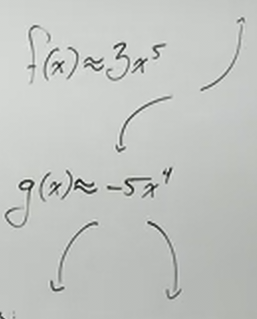 f(x)≈3x⁵
g(x)≈-5x⁴